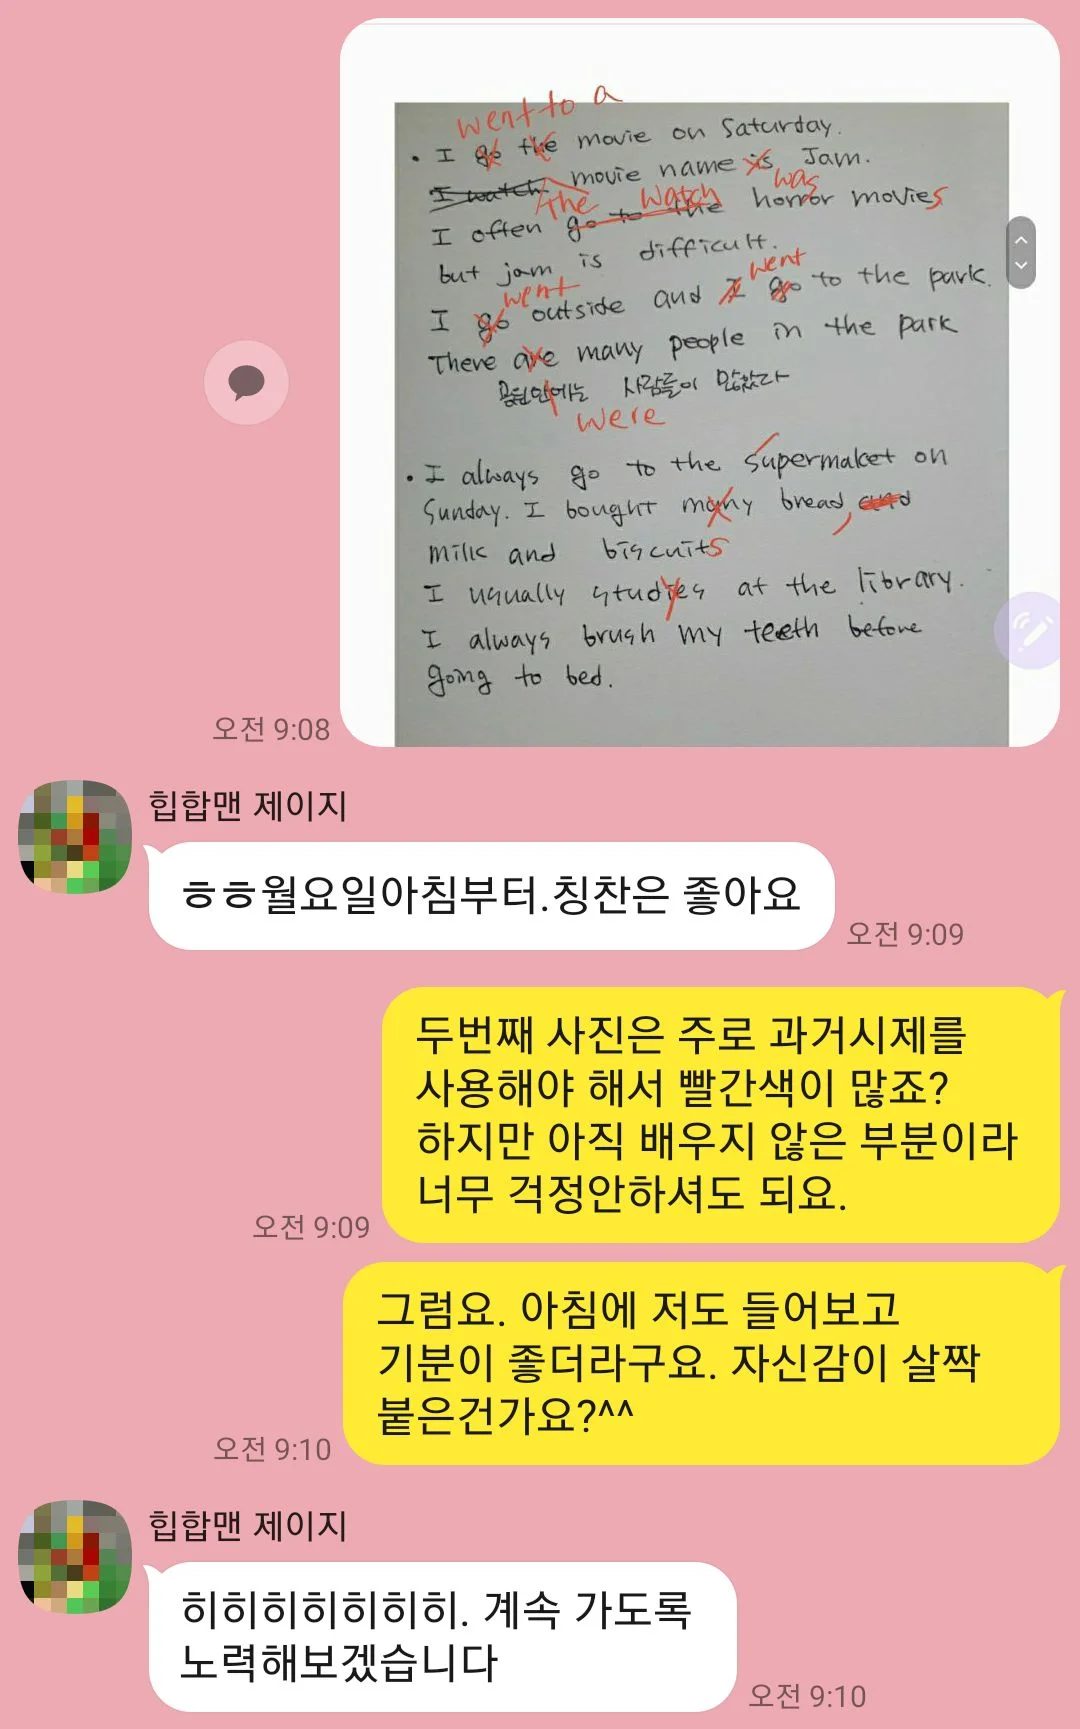 went to a
• I go the movie on Saturday.
I watch movie name is Jam.
the watch was
I often go to the horror movies
but jam is difficult.
went went
I go outside and I go to the park.
There are many people in the park
공원안에는 사람들이 많았다
were
• I always go to the supermaket on
Sunday. I bought many bread, and
milk and biscuits
I usually studyes at the library.
I always brush my teeth before
going to bed.
오전 9:08
힙합맨 제이지
ㅎㅎ월요일아침부터.칭찬은 좋아요
오전 9:09
두번째 사진은 주로 과거시제를
사용해야 해서 빨간색이 많죠?
하지만 아직 배우지 않은 부분이라
너무 걱정안하셔도 되요.
오전 9:09
그럼요. 아침에 저도 들어보고
기분이 좋더라구요. 자신감이 살짝
붙은건가요?^^
오전 9:10
힙합맨 제이지
히히히히히히히. 계속 가도록
노력해보겠습니다
오전 9:10